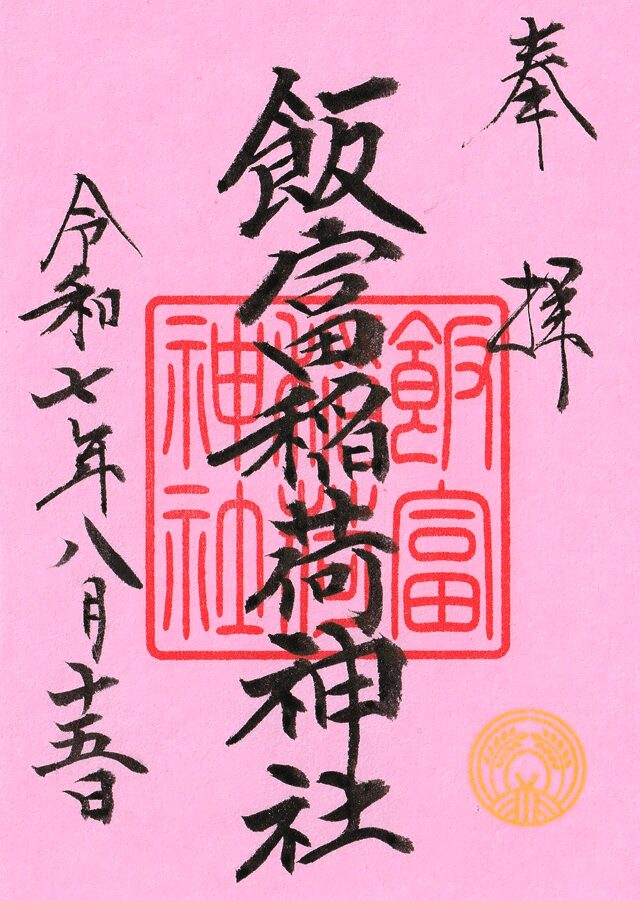 奉拝
飯富稲荷神社
飯富
稲荷
神社
令和七年八月十五日